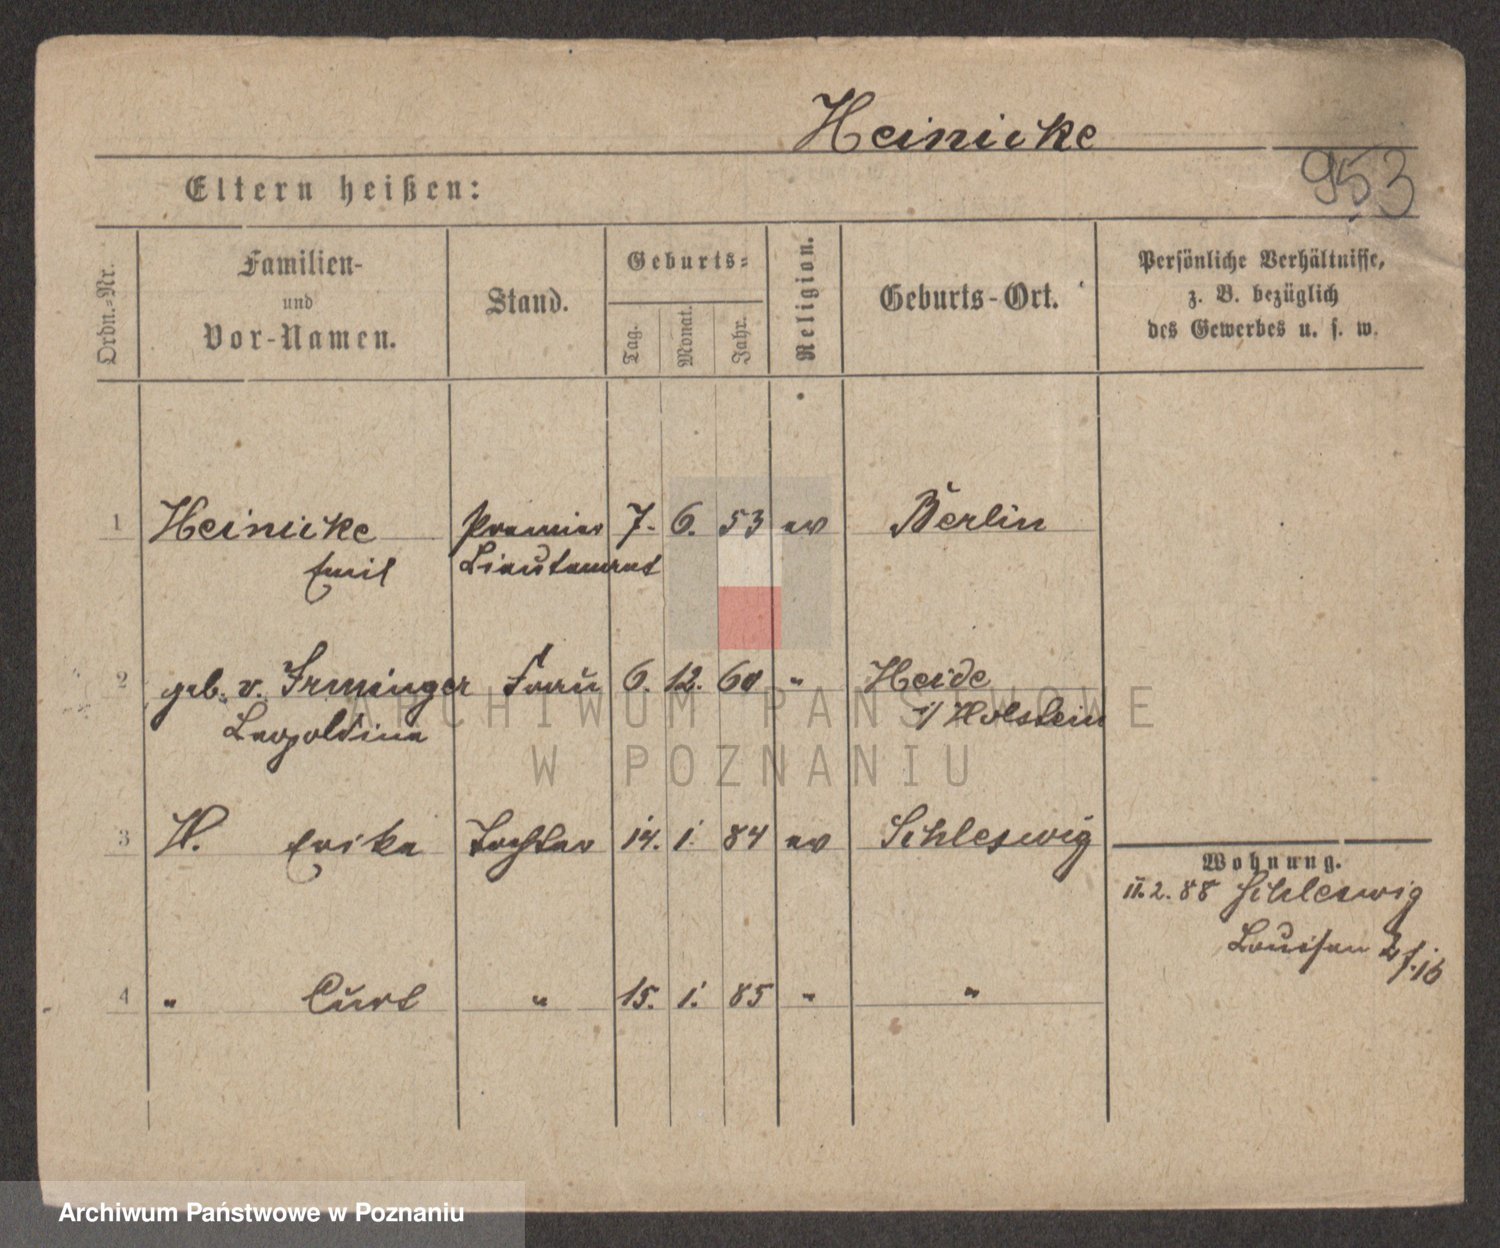 Heinicke
953
Eltern heißen:
Ordn.-Nr.
Familien-
und
Vor-Namen.
Stand.
Geburts-
Tag.
Monat.
Jahr.
Religion.
Geburts-Ort.
Persönliche Verhältnisse,
z. B. bezüglich
des Gewerbes u. s. w.
1 Heinicke Premier 7. 6. 53 ev Berlin
Emil Lieutenant
2 geb. v. Irminger Frau 6. 12. 60 " Heide
Leopoldine i/ Holstein
ARCHIWUM PAŃSTWOWE
W POZNANIU
3 H. Erika Tochter 14. 1. 84 ev Schleswig
Wohnung.
11.2.88 Schleswig
Louisen
4 " Curt " 15. 1. 85 " "
Archiwum Państwowe w Poznaniu